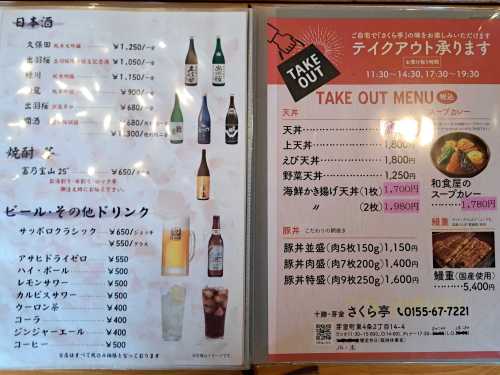 日本酒
久保田 ¥1,250/一合
出羽桜
緑川 ¥1,150/一合
¥900/一合
出羽桜 ¥680/一合
燗酒 ¥680/一合
¥1,300/
焼酎
富乃宝山 25° ¥650/
ビール・その他ドリンク
サッポロクラシック ¥650/ジョッキ
¥550/グラス
アサヒドライゼロ ¥550
ハイ・ボール ¥500
レモンサワー ¥500
カルピスサワー ¥500
ウーロン茶 ¥400
コーラ ¥400
ジンジャーエール ¥400
コーヒー ¥500
ご自宅で「さくら亭」の味をお楽しみいただけます
テイクアウト承ります
11:30~14:30, 17:30~19:30
TAKE OUT
TAKE OUT MENU 税込
天丼
天丼
上天丼 1,800
えび天丼 1,800
野菜天丼 1,250
海鮮かき揚げ天丼(1枚) 1,700円
〃 (2枚) 1,980円
豚丼 こだわりの網焼き
豚丼並盛(肉5枚150g) 1,150円
豚丼肉盛(肉7枚200g) 1,400円
豚丼特盛(肉9枚250g) 1,600円
スープカレー
和食屋の
スープカレー
1,780円
鰻重
鰻重(国産使用)
5,400円
十勝・芽室 さくら亭 0155-67-7221
芽室町東4条2丁目14-4